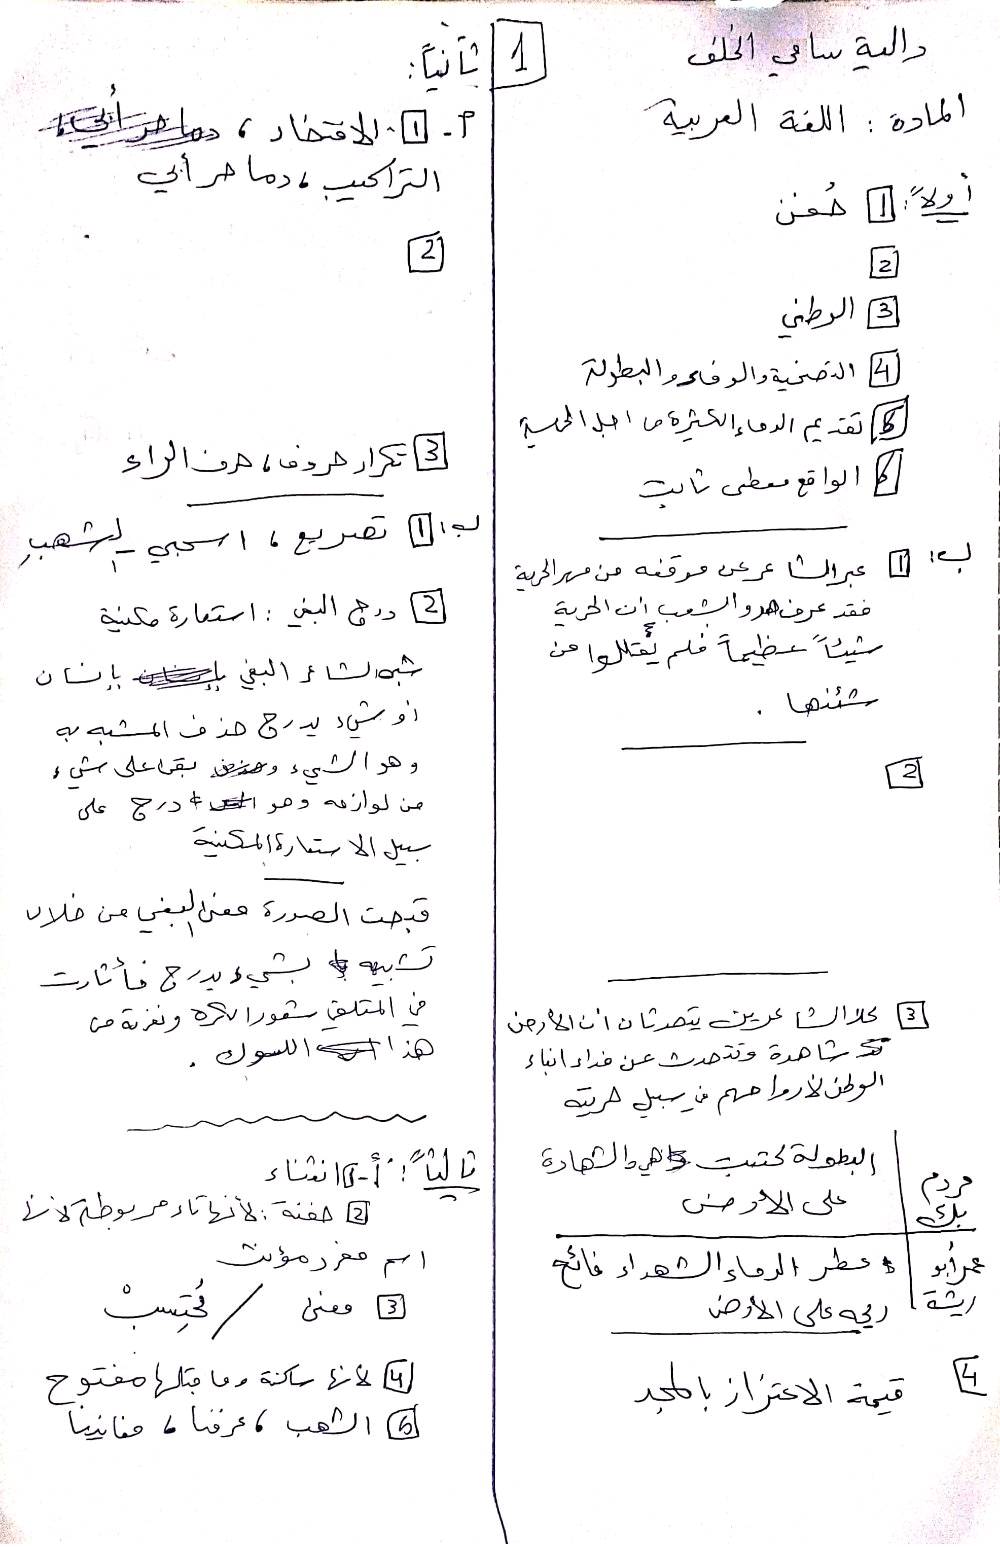 دالية سامي الخلف
المادة : اللغة العربية
أولاً: 1 حُفن
2
3 الوطني
4 التضحية والوفاء والبطولة
5 تقديم الدماء الكثيرة من اجل الحرية
6 الواقع معطى ثابت
ب: 1 عبر الشاعر عن موقفه من مهر الحرية
فقد عرف هو والشعب أن الحرية
شيئاً عظيماً فلم يُقللوا من
شئنها .
2
3 كلا الشاعرين يتحدثان ان الأرض
شاهدة وتتحدث عن فداء ابناء
الوطن لأرواحهم في سبيل حريته
مردم بك
البطولة كتبت هي والشهادة
على الأرض
عمر أبو ريشة
عطر الدماء الشهداء فائح
ريحه على الأرض
4 قيمة الاعتزاز بالمجد
1
ثانياً:
أ- 1- الافتخار ،
التراكيب ، دما حر أبي
2
3 تكرار حروف ، حرف الراء
ب: 1 تصريع ، اسحبي - الشهب
2 درج البغي : استعارة مكنية
شبه الشاعر البغي بإنسان
أو شيء يدرج حذف المشبه به
وهو الشيء بقى على شيء
من لوازمه وهو درج على
سبيل الاستعارة المكنية
قبحت الصورة معنى البغي من خلال
تشبيه بشيء يدرج فأثارت
في المتلقي شعور الكره ونفرته من
هذا السوك .
ثالثاً: أ- 1 انشاء
2 حفنة : لأنها تاء مربوطة لانها
اسم مفرد مؤنث
3 معنى / مُحتِسبْ
4 لأنها ساكنة وما قبلها مفتوح
5 الشهب ، عرفنا ، مغانينا